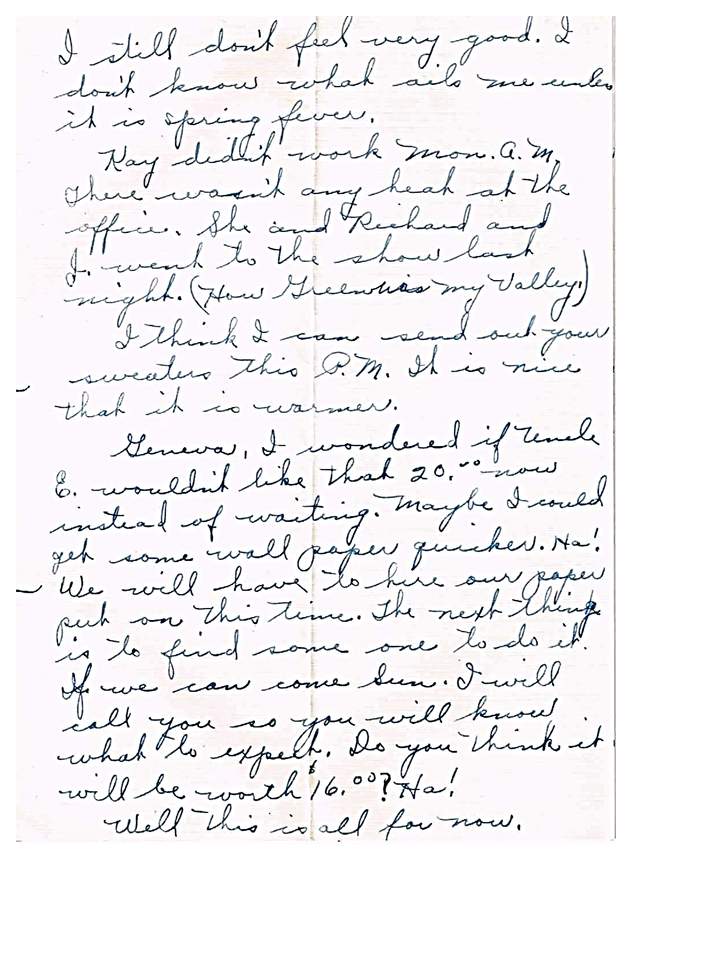 I still don't feel very good. I
don't know what ails me unless
it is spring fever.
Kay didn't work Mon. A.M.
There wasn't any heat at the
office. She and Richard and
I. went to the show last
night. (How Green was my Valley.)
I think I can send out your
sweaters this P.M. It is nice
that it is warmer.
Geneva, I wondered if Uncle
E. wouldn't like that 20.00 now
instead of waiting. Maybe I could
get some wall paper quicker. Ha!
We will have to hire our paper
put on this time. The next thing
is to find some one to do it.
If we can come Sun. I will
call you so you will know
what to expect. Do you think it
will be worth $16.00? Ha!
Well this is all for now.